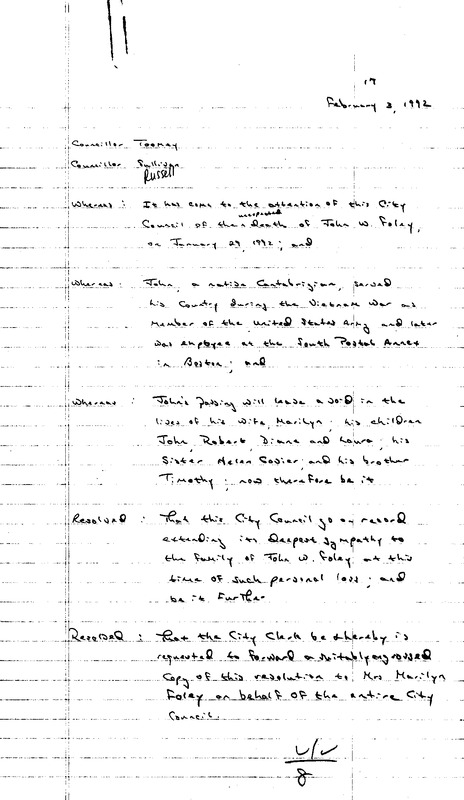 17
February 3, 1992
Councillor Toomey
Councillor Sullivan
Russell
Whereas : It has come to the attention of this City
unexpected
Council of the death of John W. Foley,
on January 29, 1992; and
Whereas : John, a native Cantabrigian, served
his Country during the Vietnam War as
Member of the United States Army and later
was employee at the South Postal Annex
in Boston; and
Whereas : John's passing will leave a void in the
lives of his wife, Marilyn; his children
John, Robert, Diane and Laura; his
Sister Helen and his brother
Timothy; now therefore be it
Resolved : That this City Council go on record
extending its deepest sympathy to
the family of John W. Foley at this
time of such personal loss; and
be it Further
Resolved : That the City Clerk be & hereby is
requested to forward a suitably engrossed
Copy of this resolution to Mrs Marilyn
Foley on behalf of the entire City
Council.
8